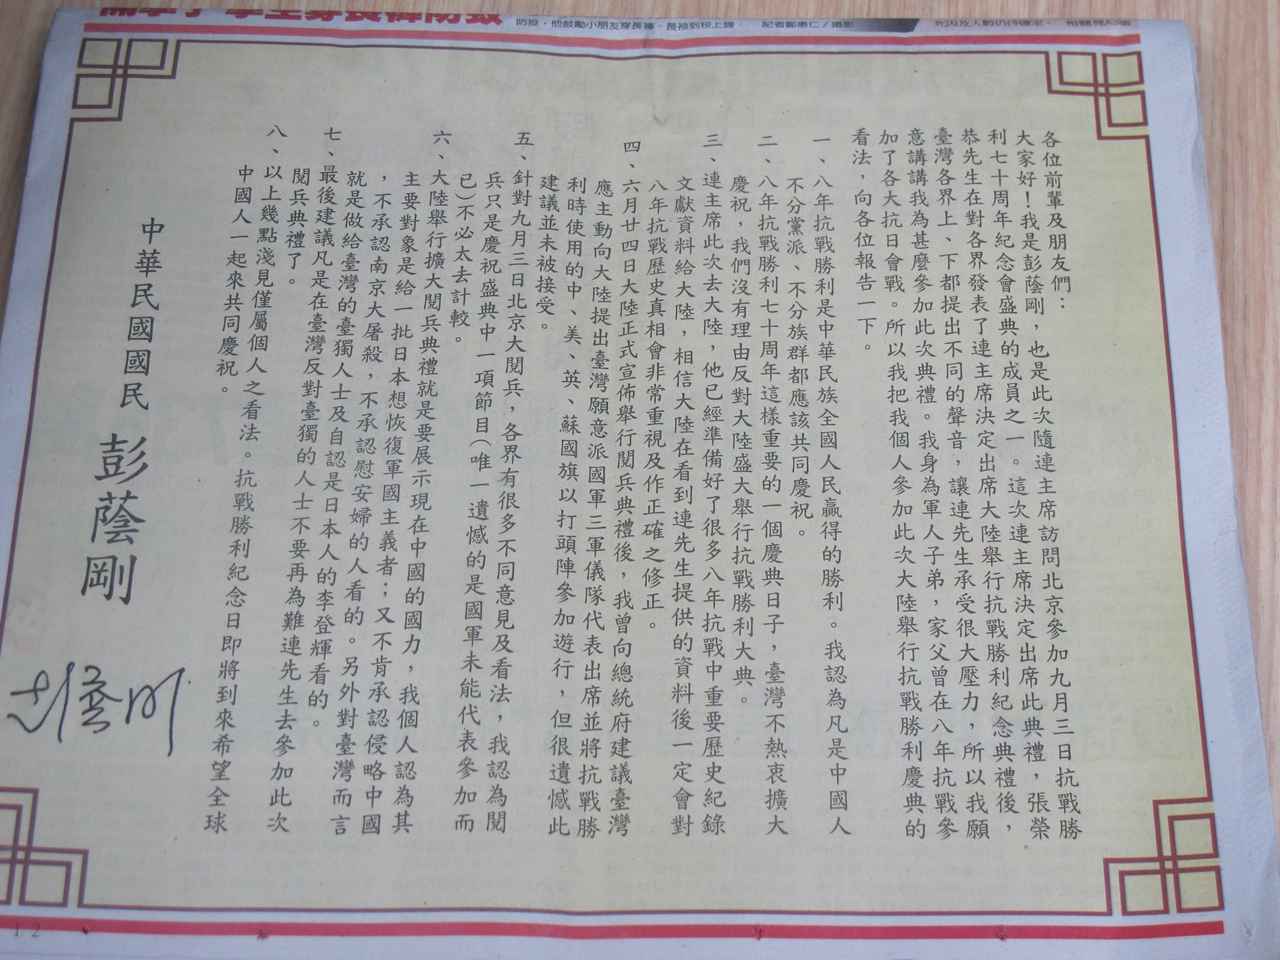 防疫，他鼓勵小朋友穿長褲、長袖到校上課。
各位前輩及朋友們：
大家好！我是彭蔭剛，也是此次隨連主席訪問北京參加九月三日抗戰勝
利七十周年紀念會盛典的成員之一。這次連主席決定出席此典禮，張榮
恭先生在對各界發表了連主席決定出席大陸舉行抗戰勝利紀念典禮後，
臺灣各界上、下都提出不同的聲音，讓連先生承受很大壓力，所以我願
意講講我為甚麼參加此次典禮。我身為軍人子弟，家父曾在八年抗戰參
加了各大抗日會戰。所以我把我個人參加此次大陸舉行抗戰勝利慶典的
看法，向各位報告一下。
一、八年抗戰勝利是中華民族全國人民贏得的勝利。我認為凡是中國人
不分黨派、不分族群都應該共同慶祝。
二、八年抗戰勝利七十周年這樣重要的一個慶典日子，臺灣不熱衷擴大
慶祝，我們沒有理由反對大陸盛大舉行抗戰勝利大典。
三、連主席此次去大陸，他已經準備好了很多八年抗戰中重要歷史紀錄
文獻資料給大陸，相信大陸在看到連先生提供的資料後一定會對
八年抗戰歷史真相會非常重視及作正確之修正。
四、六月廿四日大陸正式宣佈舉行閱兵典禮後，我曾向總統府建議臺灣
應主動向大陸提出臺灣願意派國軍三軍儀隊代表出席並將抗戰勝
利時使用的中、美、英、蘇國旗以打頭陣參加遊行，但很遺憾此
建議並未被接受。
五、針對九月三日北京大閱兵，各界有很多不同意見及看法，我認為閱
兵只是慶祝盛典中一項節目（唯一遺憾的是國軍未能代表參加而
已）不必太去計較。
六、大陸舉行擴大閱兵典禮就是要展示現在中國的國力，我個人認為其
主要對象是給一批日本想恢復軍國主義者；又不肯承認侵略中國
，不承認南京大屠殺，不承認慰安婦的人看的。另外對臺灣而言
就是做給臺灣的臺獨人士及自認是日本人的李登輝看的。
七、最後建議凡是在臺灣反對臺獨的人士不要再為難連先生去參加此次
閱兵典禮了。
八、以上幾點淺見僅屬個人之看法。抗戰勝利紀念日即將到來希望全球
中國人一起來共同慶祝。
中華民國國民 彭蔭剛
12